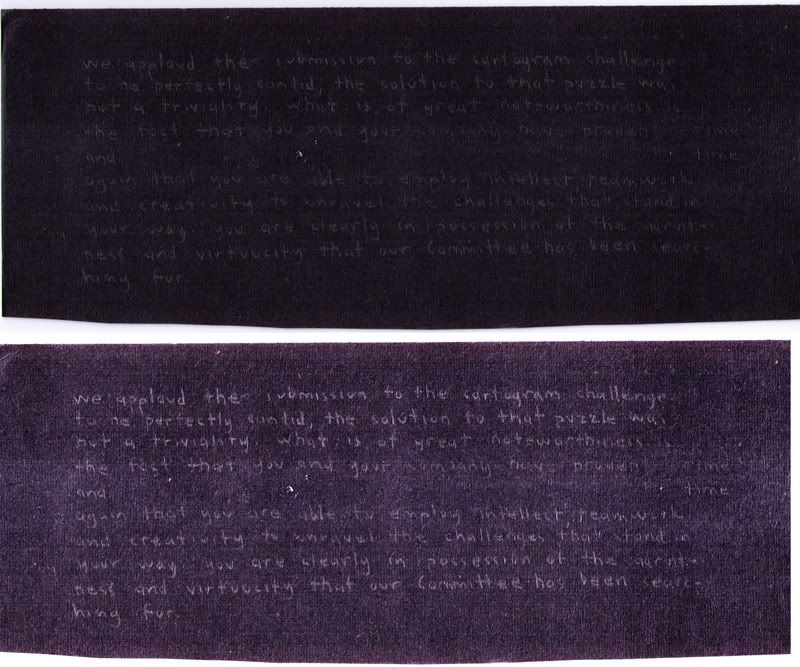 we applaud ther submission to the cartogram challenge
to be perfectly candid, the solution to that puzzle was
but a triviality. what is of great noteworthiness is
the fact that you and your company have proven time
and time
again that you are able to employ intellect, teamwork
and creativity to unravel the challenges that stand in
your way. you are clearly in possession of the
ness and virtuocity that our Committee has been searc-
hing for.
we applaud ther submission to the cartogram challenge
to be perfectly candid, the solution to that puzzle was
but a triviality. what is of great noteworthiness is
the fact that you and your company have proven time
and time
again that you are able to employ intellect, teamwork
and creativity to unravel the challenges that stand in
your way. you are clearly in possession of the
ness and virtuocity that our Committee has been searc-
hing for.